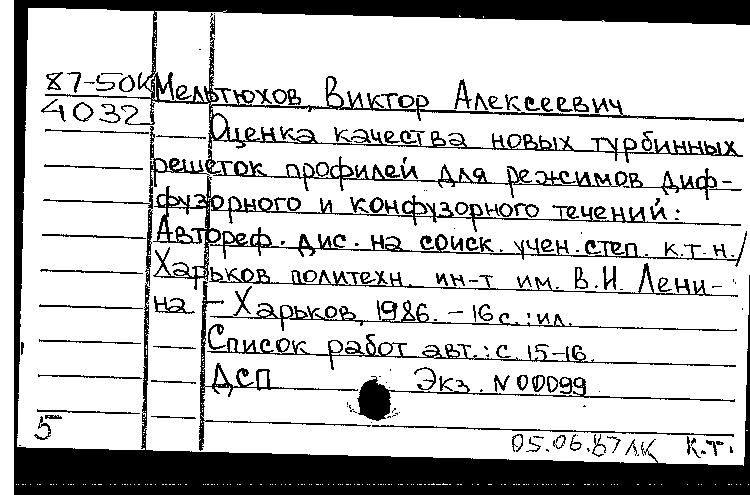 87-50К Мельтюхов, Виктор Алексеевич
4032
Оценка качества новых турбинных
решеток профилей для режимов диф-
фузорного и конфузорного течений:
Автореф. дис. на соиск. учен. степ. к.т.н./
Харьков политехн. ин-т им. В.И. Лени-
на - Харьков, 1986. - 16 с.: ил.
Список работ авт.: с. 15-16.
ДСП Экз. N 00099
5 05.06.87 ЛК К.Т.